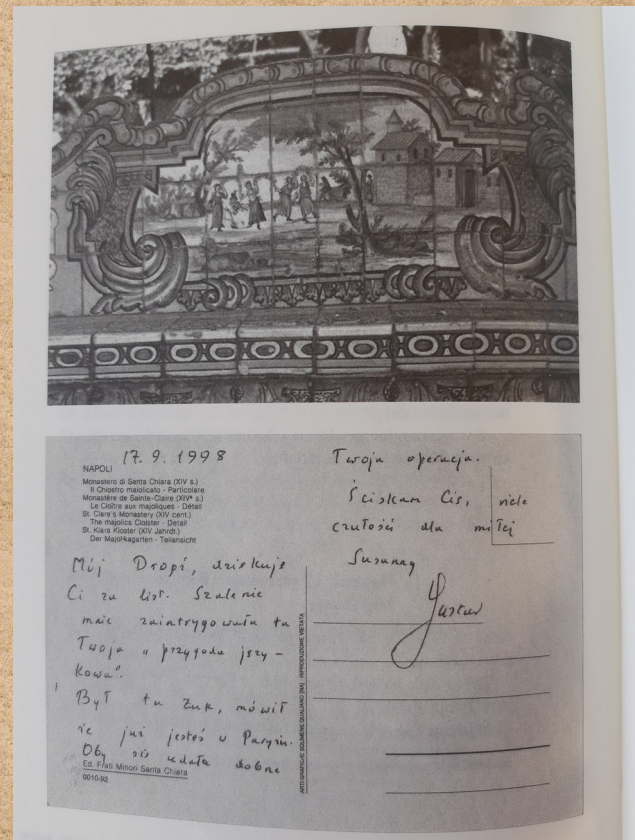 17. 9. 1998
NAPOLI
Monastero di Santa Chiara (XIV s.)
Il Chiostro maiolicato - Particolare
Monastère de Sainte-Claire (XIVe s.)
Le Cloître aux majoliques - Détail
St. Clare's Monastery (XIV cent.)
The majolica Cloister - Detail
St. Klara Kloster (XIV Jahrdt.)
Der Majolkagarten - Teilansicht
Mój Dropś, dziękuję
Ci za list. Szalenie
mnie zaintrygowała ta
Twoja „przygoda języ-
kowa".
Był tu Żuk, mówił
że już jesteś w Paryżu.
Oby się udała dobrze
Ed. Frati Minori Santa Chiara
0010-92
ARTI GRAFICHE SOLIMENE QUALIANO (NA) - RIPRODUZIONE VIETATA
Twoja operacja.
Ściskam Cię, wiele
czułości dla miłej
Susanny
Gustaw